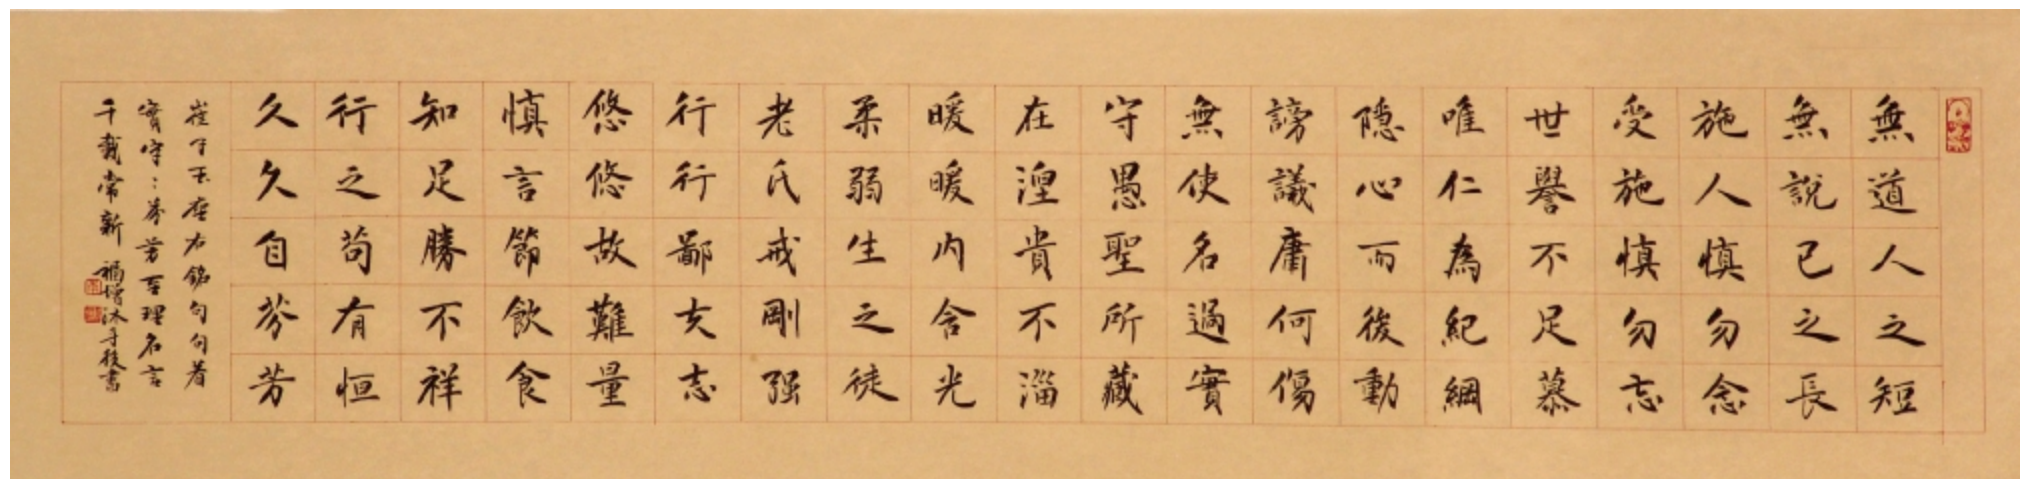 無道人之短
無說己之長
施人慎勿念
受施慎勿忘
世譽不足慕
唯仁為紀綱
隱心而後動
謗議庸何傷
無使名過實
守愚聖所藏
在涅貴不淄
暖暖內含光
柔弱生之徒
老氏戒剛强
行行鄙夫志
悠悠故難量
慎言節飲食
知足勝不祥
行之苟有恒
久久自芬芳
崔子玉座右銘句句着
實字字芬芳至理名言
千載常新 福增沐手敬書